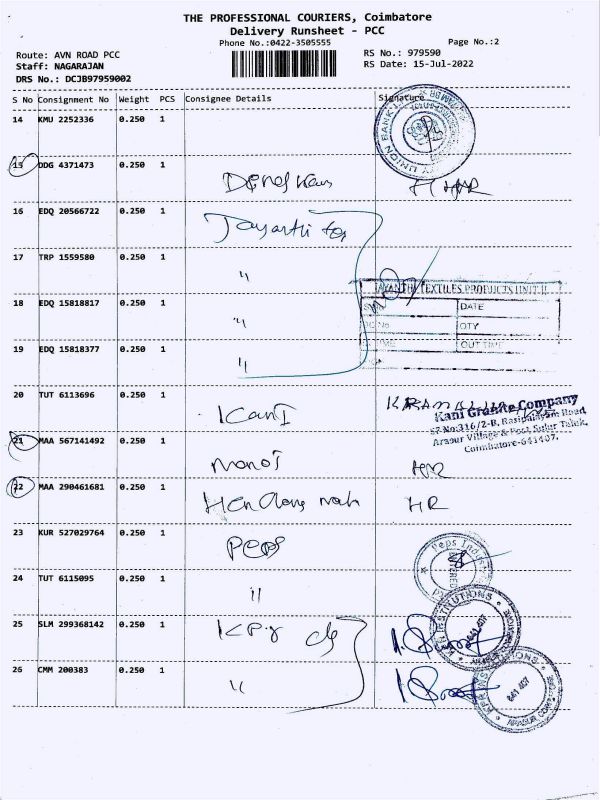 THE PROFESSIONAL COURIERS, Coimbatore
Delivery Runsheet - PCC
Phone No.:0422-3505555
Page No.:2
Route: AVN ROAD PCC
RS No.: 979590
Staff: NAGARAJAN
RS Date: 15-Jul-2022
DRS No.: DCJB97959002
S No Consignment No Weight PCS Consignee Details Signature
14 KMU 2252336 0.250 1
UNION BANK
15 DDG 4371473 0.250 1
16 EDQ 20566722 0.250 1 Jayanthi tex
17 TRP 1559580 0.250 1 "
JAYANTHI TEXTILES PRODUCTS UNIT II
18 EDQ 15818817 0.250 1 "
DATE
QTY
19 EDQ 15818377 0.250 1 "
OUT TIME
20 TUT 6113696 0.250 1 KANI
Kani Granite Company
SF No:316/2-B, Rasipalayam Road,
Arasur Village & Post, Sulur Taluk,
Coimbatore-641407.
21 MAA 567141492 0.250 1 manoj HR
22 MAA 290461681 0.250 1 HR
23 KUR 527029764 0.250 1 PePs
Peps
24 TUT 6115095 0.250 1 "
25 SLM 299368142 0.250 1 KPR clg
INSTITUTIONS
641 407
26 CMM 200383 0.250 1 "
641 407